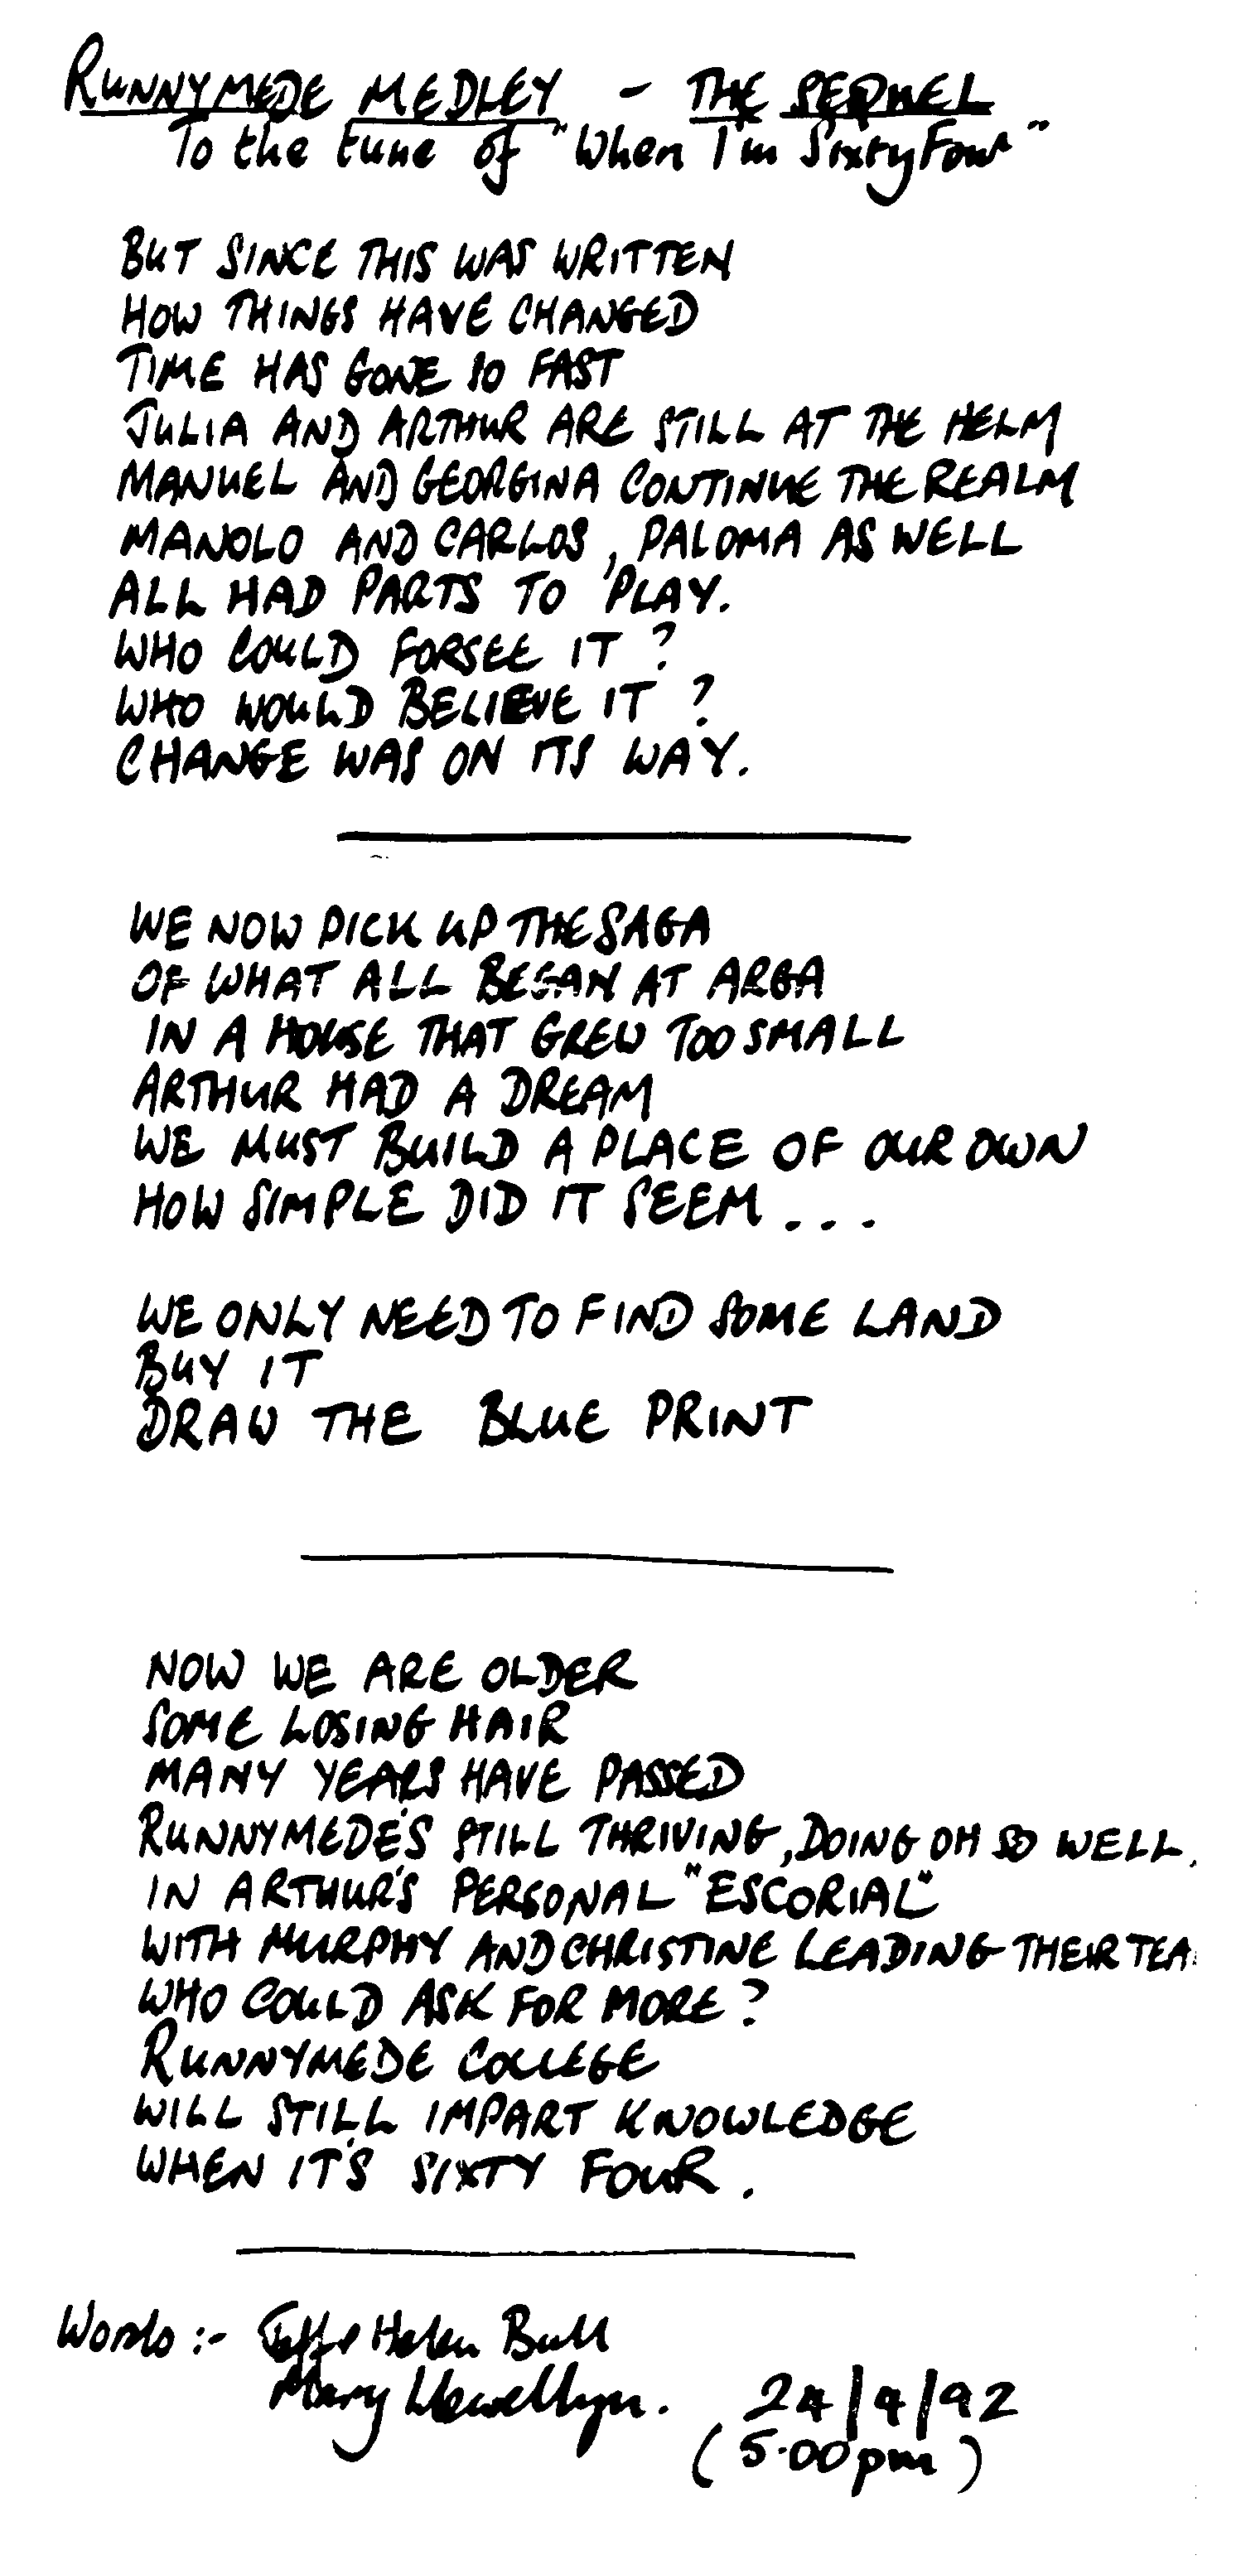 RUNNYMEDE MEDLEY - THE SEQUEL
To the tune of "When I'm Sixty Four"
BUT SINCE THIS WAS WRITTEN
HOW THINGS HAVE CHANGED
TIME HAS GONE SO FAST
JULIA AND ARTHUR ARE STILL AT THE HELM
MANUEL AND GEORGINA CONTINUE THE REALM
MANOLO AND CARLOS, PALOMA AS WELL
ALL HAD PARTS TO PLAY.
WHO COULD FORSEE IT?
WHO WOULD BELIEVE IT?
CHANGE WAS ON ITS WAY.
WE NOW PICK UP THE SAGA
OF WHAT ALL BEGAN AT ARGA
IN A HOUSE THAT GREW TOO SMALL
ARTHUR HAD A DREAM
WE MUST BUILD A PLACE OF OUR OWN
HOW SIMPLE DID IT SEEM...
WE ONLY NEED TO FIND SOME LAND
BUY IT
DRAW THE BLUE PRINT
NOW WE ARE OLDER
SOME LOSING HAIR
MANY YEARS HAVE PASSED
RUNNYMEDE'S STILL THRIVING, DOING OH SO WELL,
IN ARTHUR'S PERSONAL "ESCORIAL"
WITH MURPHY AND CHRISTINE LEADING THEIR TEA
WHO COULD ASK FOR MORE?
RUNNYMEDE COLLEGE
WILL STILL IMPART KNOWLEDGE
WHEN IT'S SIXTY FOUR.
Words :- Jeff & Helen Bull
Mary Llewellyn. 24/4/92
(5.00pm)